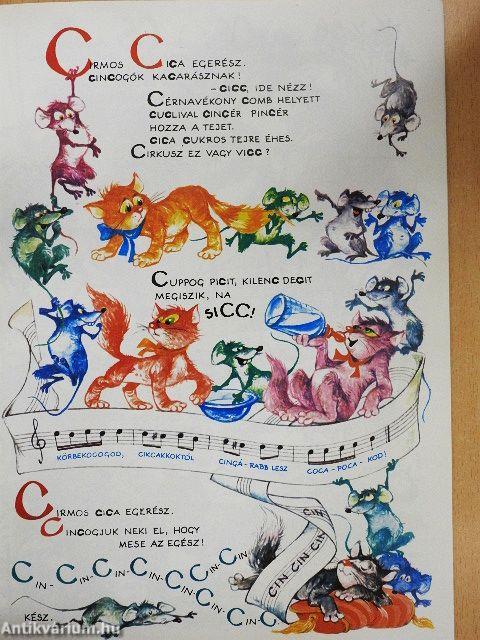 CIRMOS CICA EGERÉSZ.
CINCOGÓK KACARÁSZNAK!
– CICC, IDE NÉZZ!
CÉRNAVÉKONY COMB HELYETT
CUCLIVAL CINCÉR PINCÉR
HOZZA A TEJET.
CICA CUKROS TEJRE ÉHES.
CIRKUSZ EZ VAGY VICC?
CUPPOG PICIT, KILENC DECIT
MEGISZIK, NA
SICC!
KÖRBEKOCOGOD, CIKCAKKOKTÓL CINGÁ-RABB LESZ COCA-POCA-KOD!
CIRMOS CICA EGERÉSZ.
CINCOGJUK NEKI EL, HOGY
MESE AZ EGÉSZ!
CIN-CIN-CIN-CIN-CIN-CIN-CIN
CIN-CIN-CIN
CIN
KÉSZ.
Antikvárium.hu